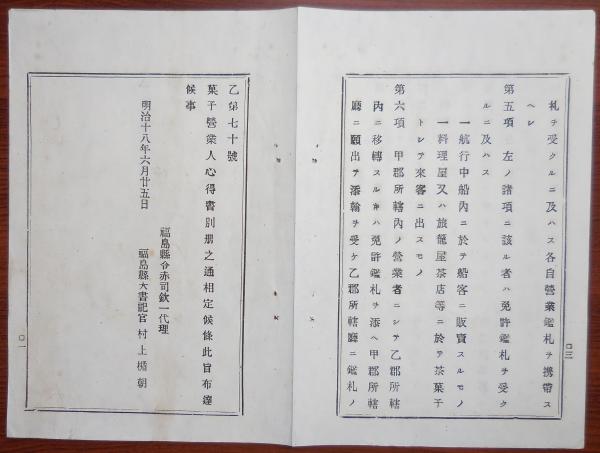 札ヲ受クルニ及ハス各自營業鑑札ヲ携帶ス
ヘシ
第五項 左ノ諸項ニ該ル者ハ免許鑑札ヲ受ク
ルニ及ハス
一航行中船內ニ於テ船客ニ販賣スルモノ
一料理屋又ハ旅籠屋茶店等ニ於テ茶菓子
トシテ來客ニ出スモノ
第六項 甲郡所轄內ノ營業者ニシテ乙郡所轄
內ニ移轉スルキハ免許鑑札ヲ添ヘ甲郡所轄
廳ニ願出テ添翰ヲ受ケ乙郡所轄廳ニ鑑札ノ
〇三
乙第七十號
菓子營業人心得書別册之通相定候條此旨布達
候事
明治十八年六月廿五日
福島縣令赤司欽一代理
福島縣大書記官 村上楯朝
〇一